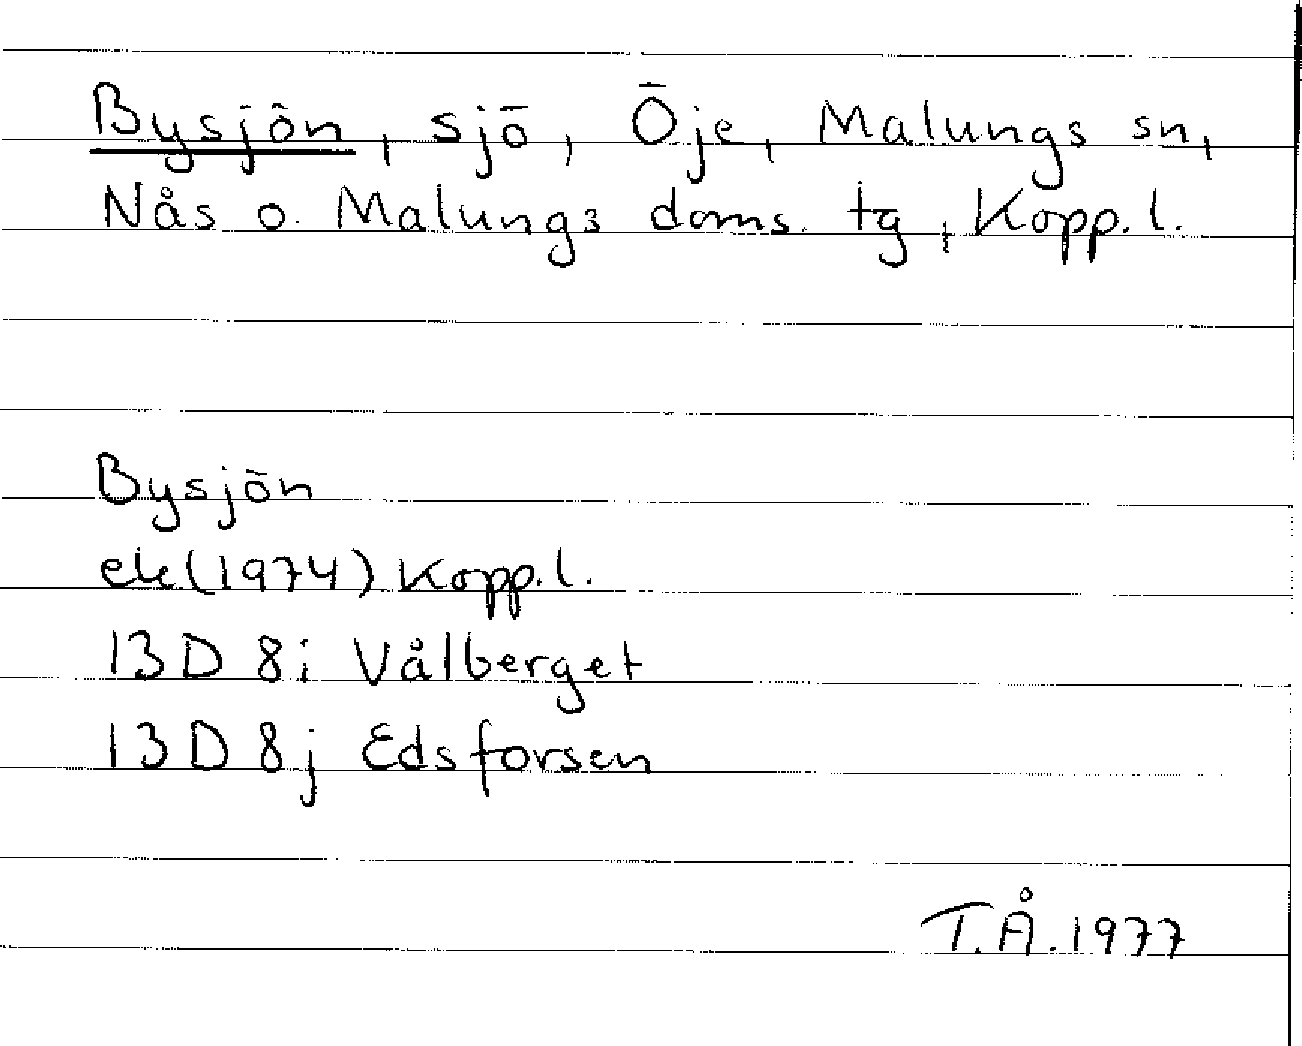 Bysjön, sjö, Öje, Malungs sn,
Nås o. Malungs doms. tg, Kopp. l.
Bysjön
ek (1974) Kopp. l.
13 D 8 i Vålberget
13 D 8 j Edsforsen
T.Å. 1977